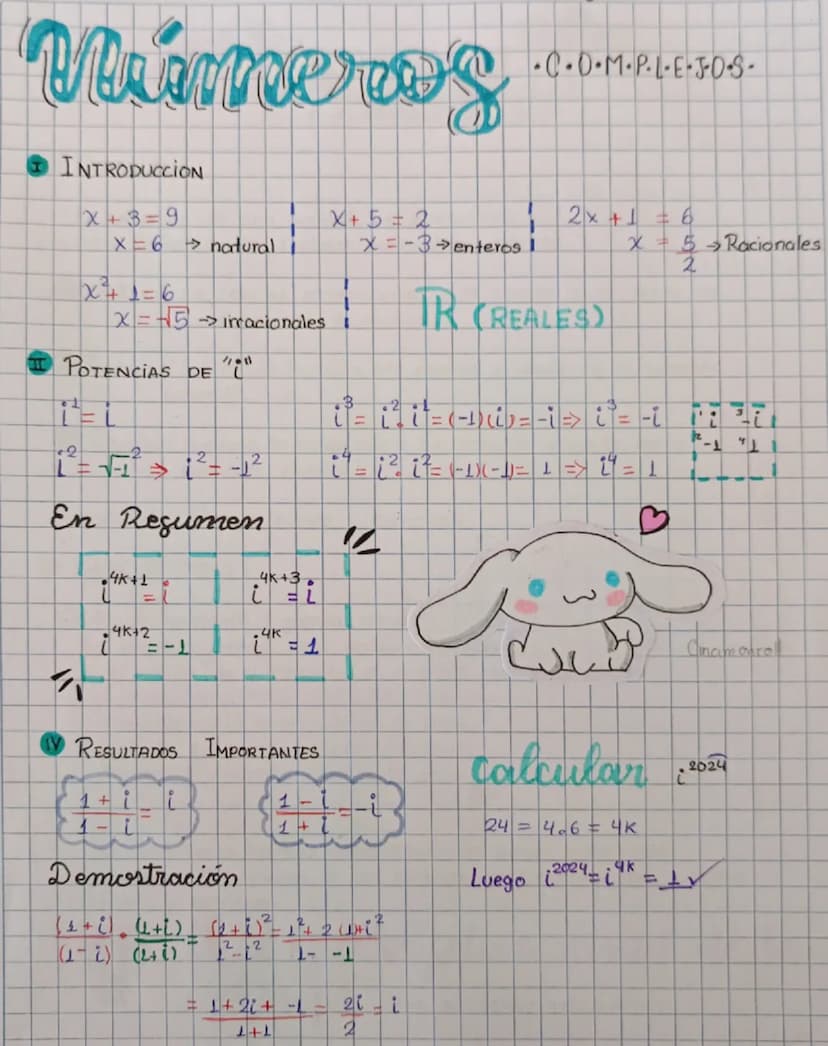 Números ·C·O·M·P·L·E·J·O·S·
I INTRODUCCION
x + 3 = 9
x = 6 → natural
x + 5 = 2
x = -3 → enteros
2x + 1 = 6
x = 5/2 → Racionales
x² + 1 = 6
x = √5 → irracionales
ℝ (REALES)
II POTENCIAS DE "i"
i¹ = i
i² = √-1² ⇒ i² = -1²
i³ = i² . i¹ = (-1)(i) = -i ⇒ i³ = -i
i⁴ = i² . i² = (-1)(-1) = 1 ⇒ i⁴ = 1
¹i ³-i
²-1 ⁴1
En Resumen
i⁴ᵏ⁺¹ = i i⁴ᵏ⁺³ = i
i⁴ᵏ⁺² = -1 i⁴ᵏ = 1
Cinamoroll
IV RESULTADOS IMPORTANTES
(1 + i)/(1 - i) = i
(1 - i)/(1 + i) = -i
Demostración
(1+i)/(1-i) · (1+i)/(1+i) = (1+i)²/(1²-i²) = (1²+2(1)+i²)/(1- -1)
= (1+2i+ -1)/(1+1) = 2i/2 = i
Calcular i²⁰²⁴
24 = 4.6 = 4K
Luego i²⁰²⁴ = i⁴ᴷ = 1 ✓